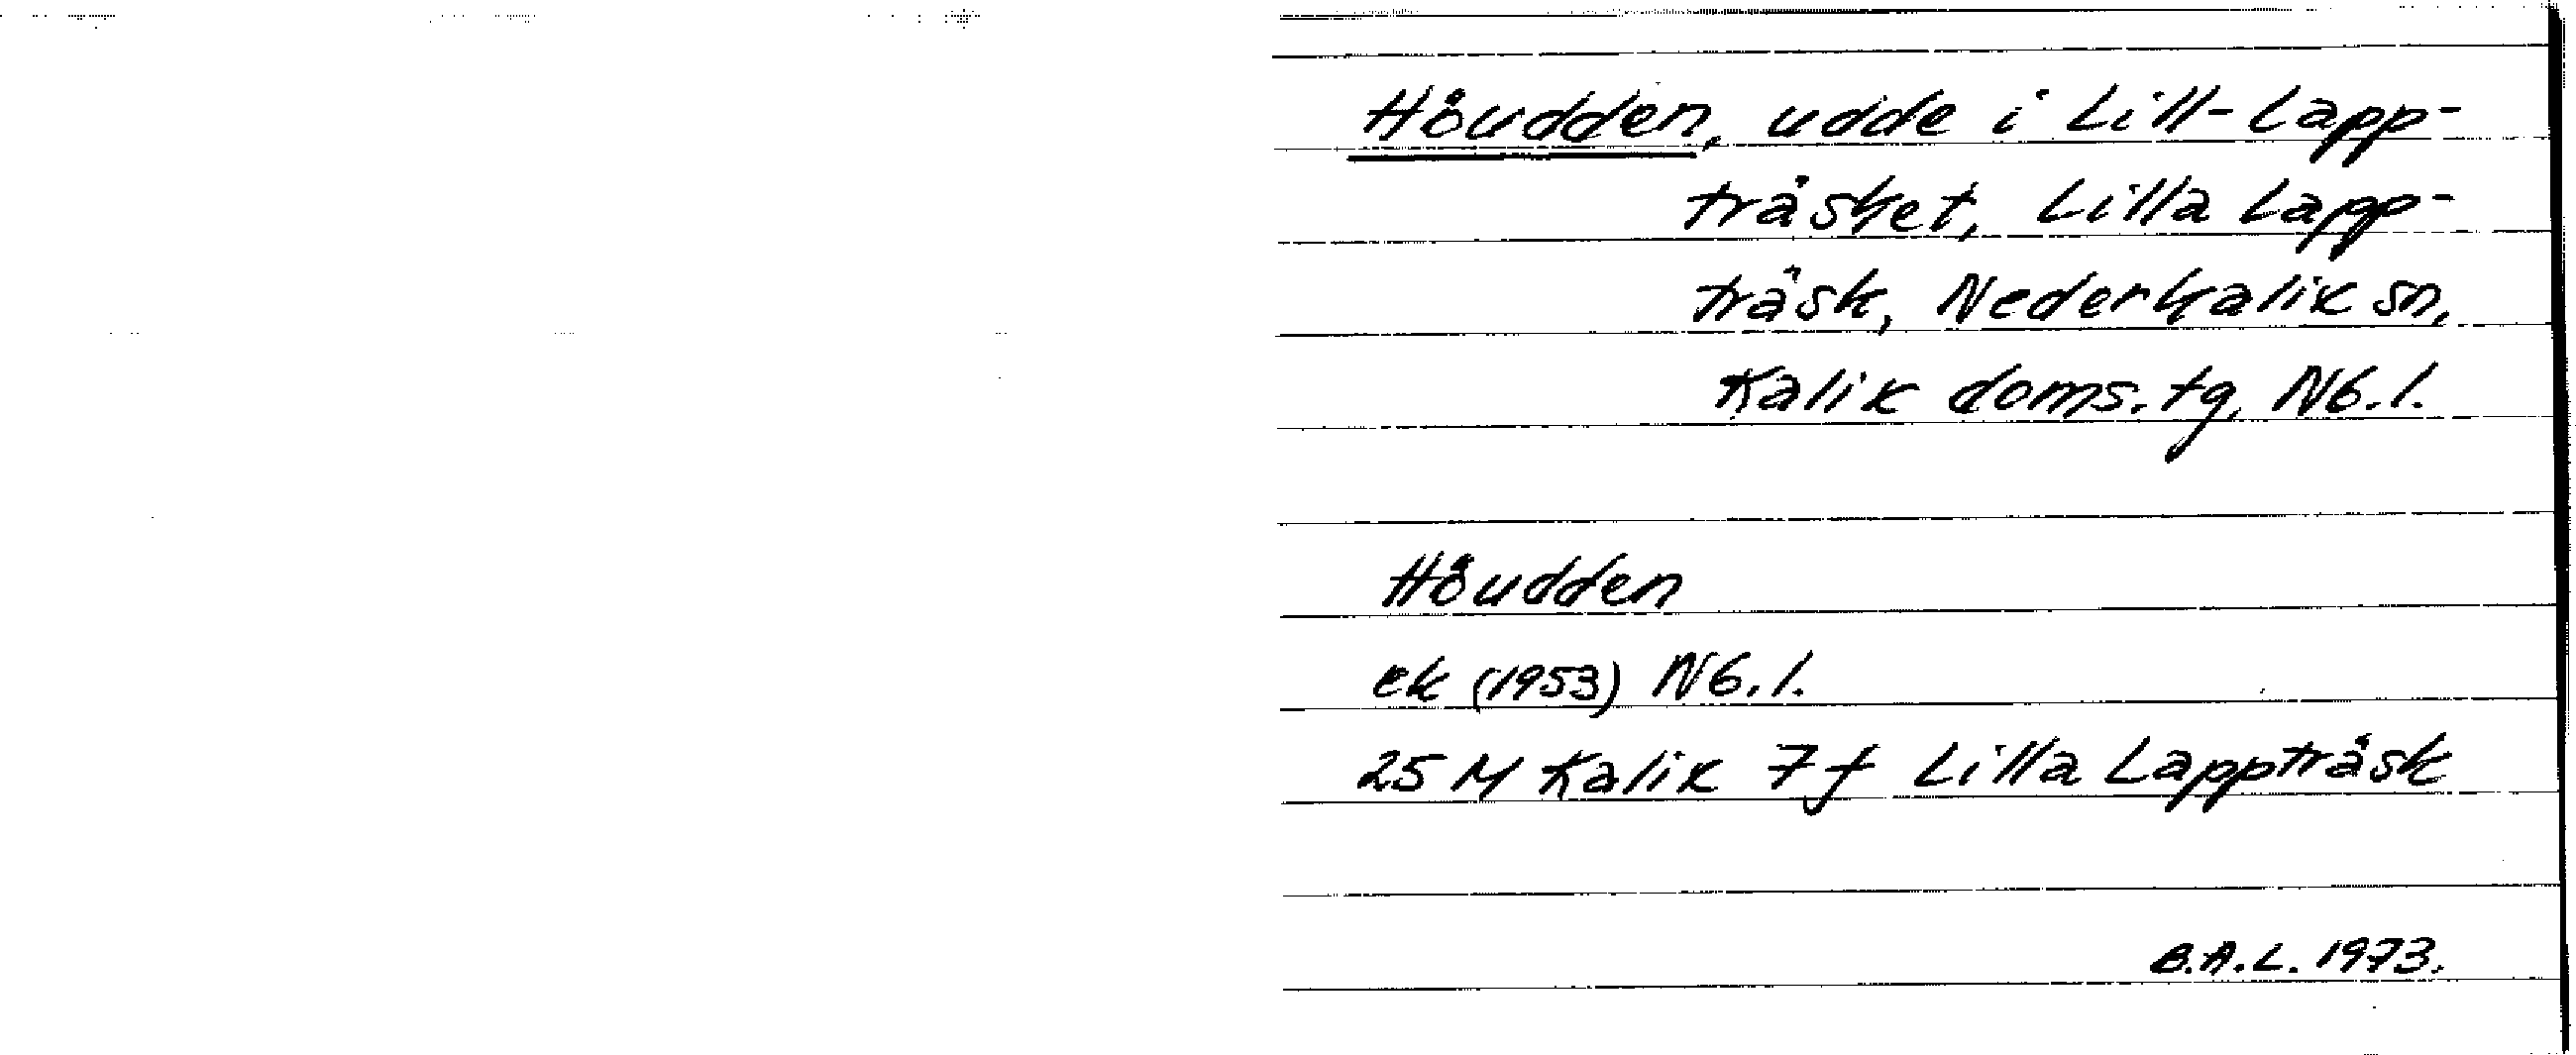 Höudden, udde i Lill-Lapp-
träsket, Lilla Lapp-
träsk, Nederkalix sn,
Kalix doms.tg, Nb.l.
Höudden
ek (1953) Nb.l.
25 M Kalix 7 f Lilla Lappträsk
B.A.L. 1973.